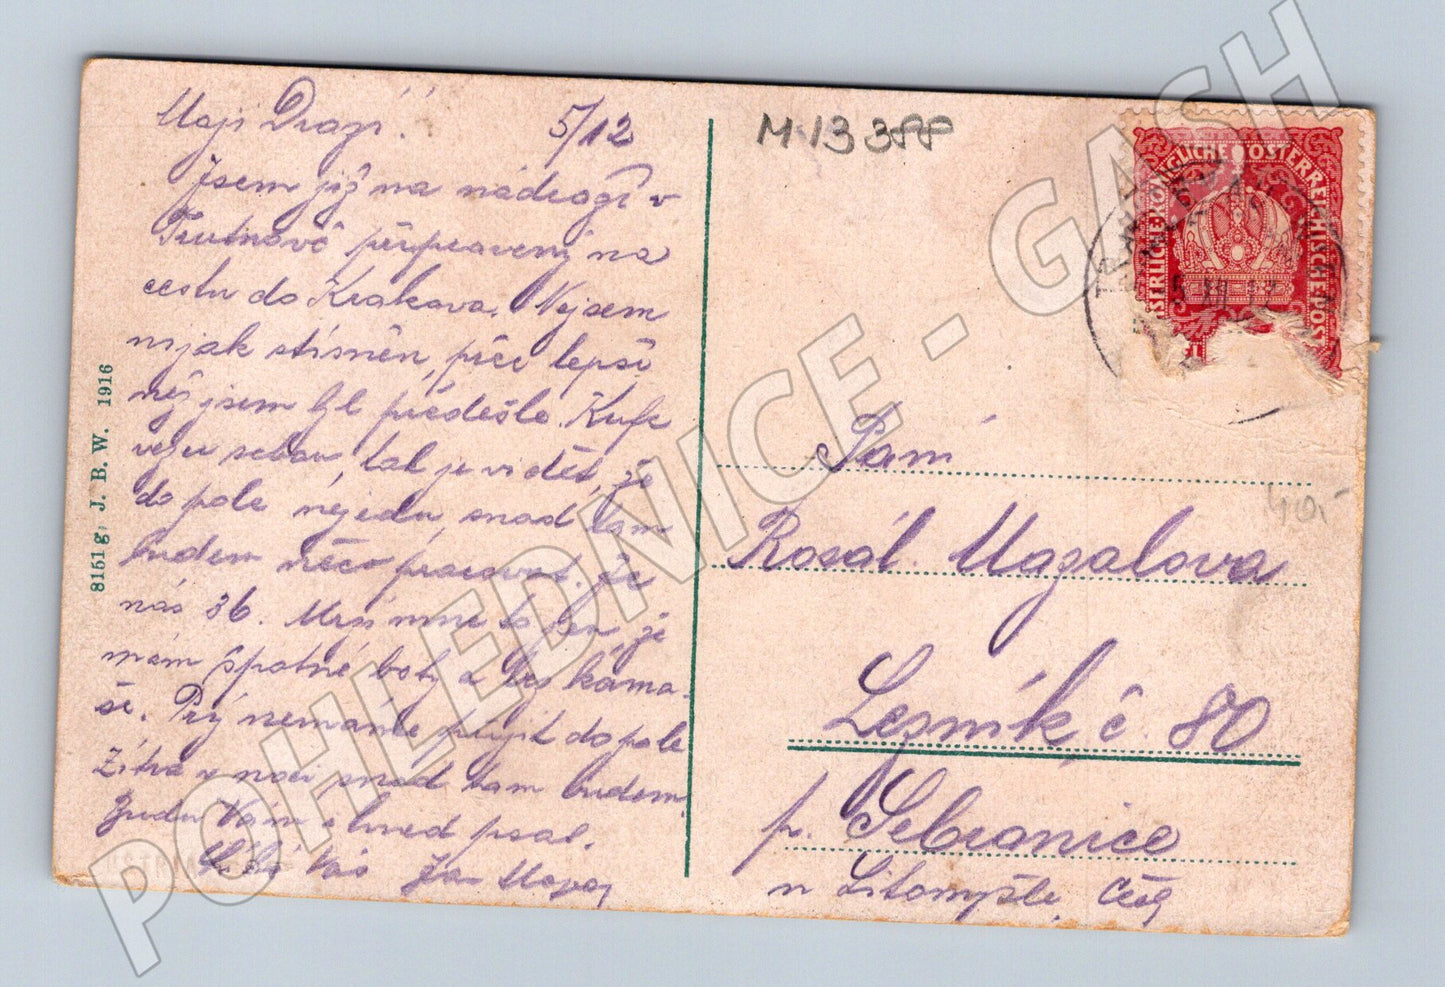 Moji Drazí!
5/12
Jsem již na nádraží v
Trutnově připravený na
cestu do Krakova. Nejsem
nijak stísněn, přec lepší
něj jsem byl předešle. Kufr
vezu sebou, tak je vidět, že
do pole nejedu, snad tam
budem něco pracovat. Je
nás 36. Mrzí mne to jen, že
mám špatné boty a bez kama-
ší. Prý nemáme přijít do pole
Zítra v noci snad tam budem.
Budu Vám ihned psat.
Vás Jan
M 13388
Paní
40.-
Rosál. Mazalova
Lezník č 80
p. Sebranice
u Litomyšle, Čechy
8151 g, J. B. W. 1916
KAISERLICHE KÖNIGLICHE ÖSTERREICHISCHE POST
POHLEDNICE - GASH